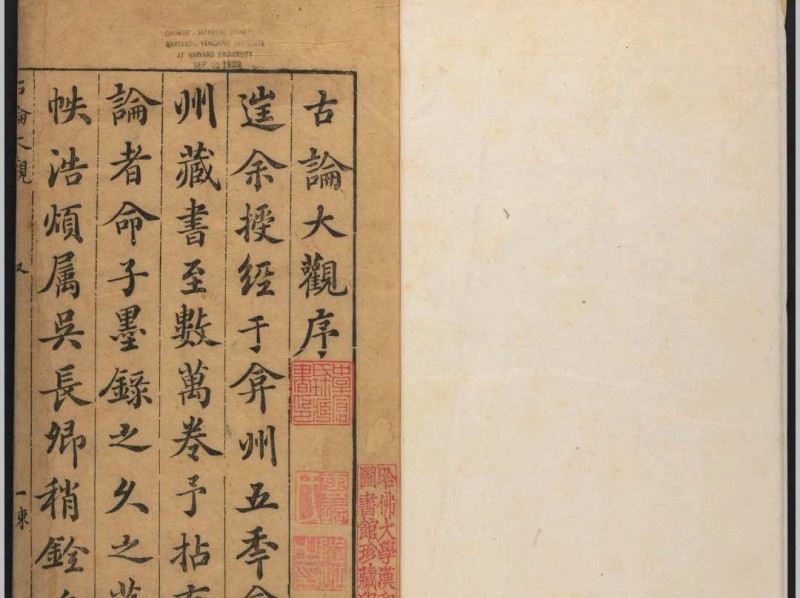 CHINESE - JAPANESE LIBRARY
HARVARD-YENCHING INSTITUTE
AT HARVARD UNIVERSITY
SEP 1939
古論大觀序
進余授經于弇州五季
州藏書至數萬卷予拈
論者命子墨錄之久之
帙浩煩属吳長卿稍銓
古論大觀
一東
哈佛大學漢和
圖書館珍藏印